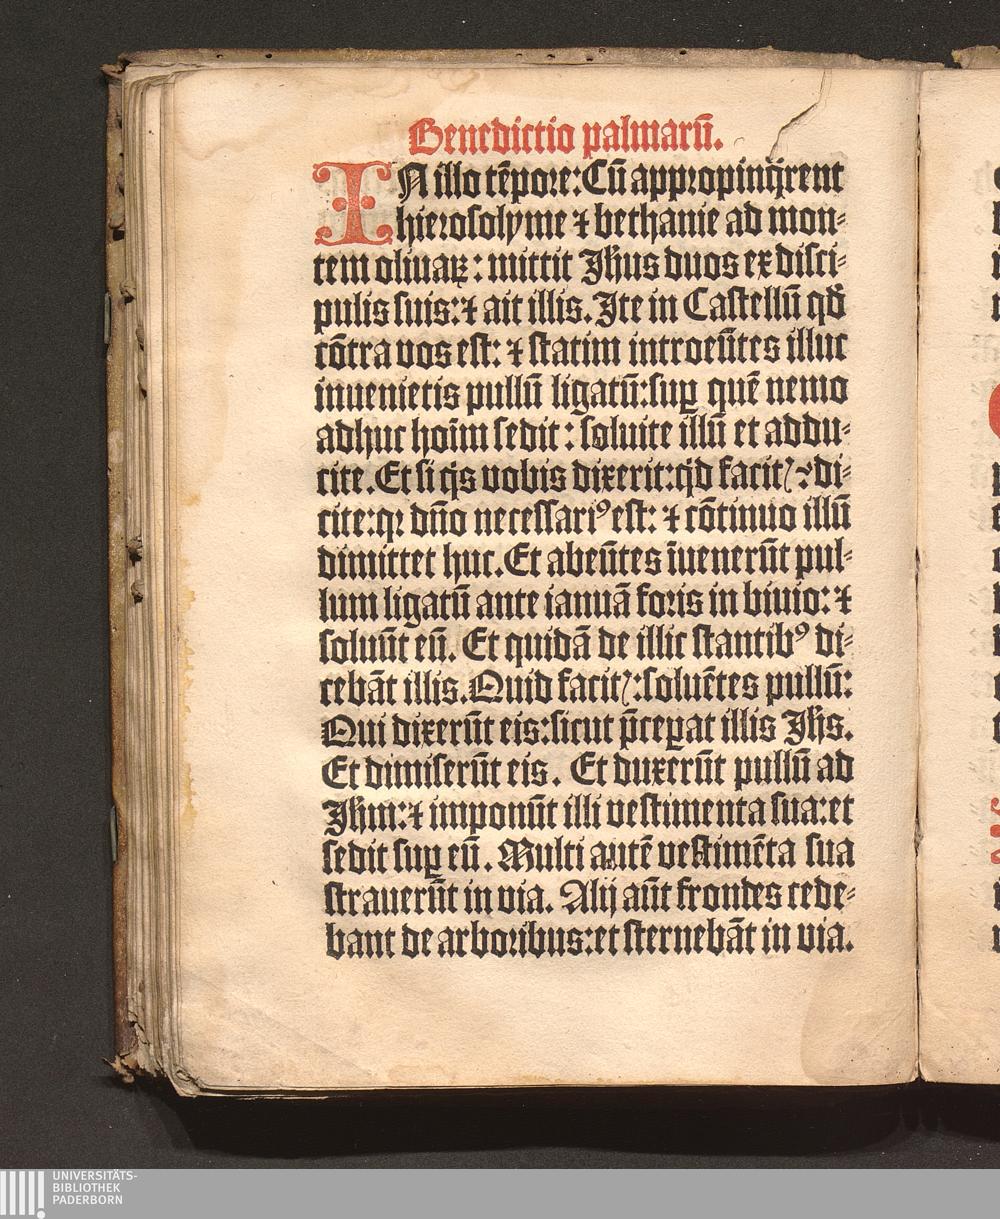 Benedictio palmarū.
IN illo tēpore: Cū appropinq̄rent
hierosolyme ⁊ bethanie ad mon⸗
tem oliuaꝝ: mittit Jh̄us duos ex disci⸗
pulis suis: ⁊ ait illis. Jte in Castellū qđ
cōtra vos est: ⁊ statim introeūtes illuc
inuenietis pullū ligatū: suꝑ quē nemo
adhuc hoīm sedit: soluite illū et addu⸗
cite. Et si q̄s vobis dixerit: qd̄ facitꝭ? di⸗
cite: qꝛ dn̄o necessariꝰ est: ⁊ cōtinuo illū
dimittet huc. Et abeūtes īuenerūt pul⸗
lum ligatū ante ianuā foris in biuio: ⁊
soluūt eū. Et quidā de illic stantibꝰ di⸗
cebāt illis. Quid facitꝭ: soluētes pullū:
Qui dixerūt eis: sicut p̄ceꝑat illis Jh̄s.
Et dimiserūt eis. Et duxerūt pullū ad
Jh̄m: ⁊ imponūt illi vestimenta sua: et
sedit suꝑ eū. Multi autē vestimēta sua
strauerūt in via. Alij aūt frondes cede⸗
bant de arboribus: et sternebāt in via.
UNIVERSITÄTS-
BIBLIOTHEK
PADERBORN